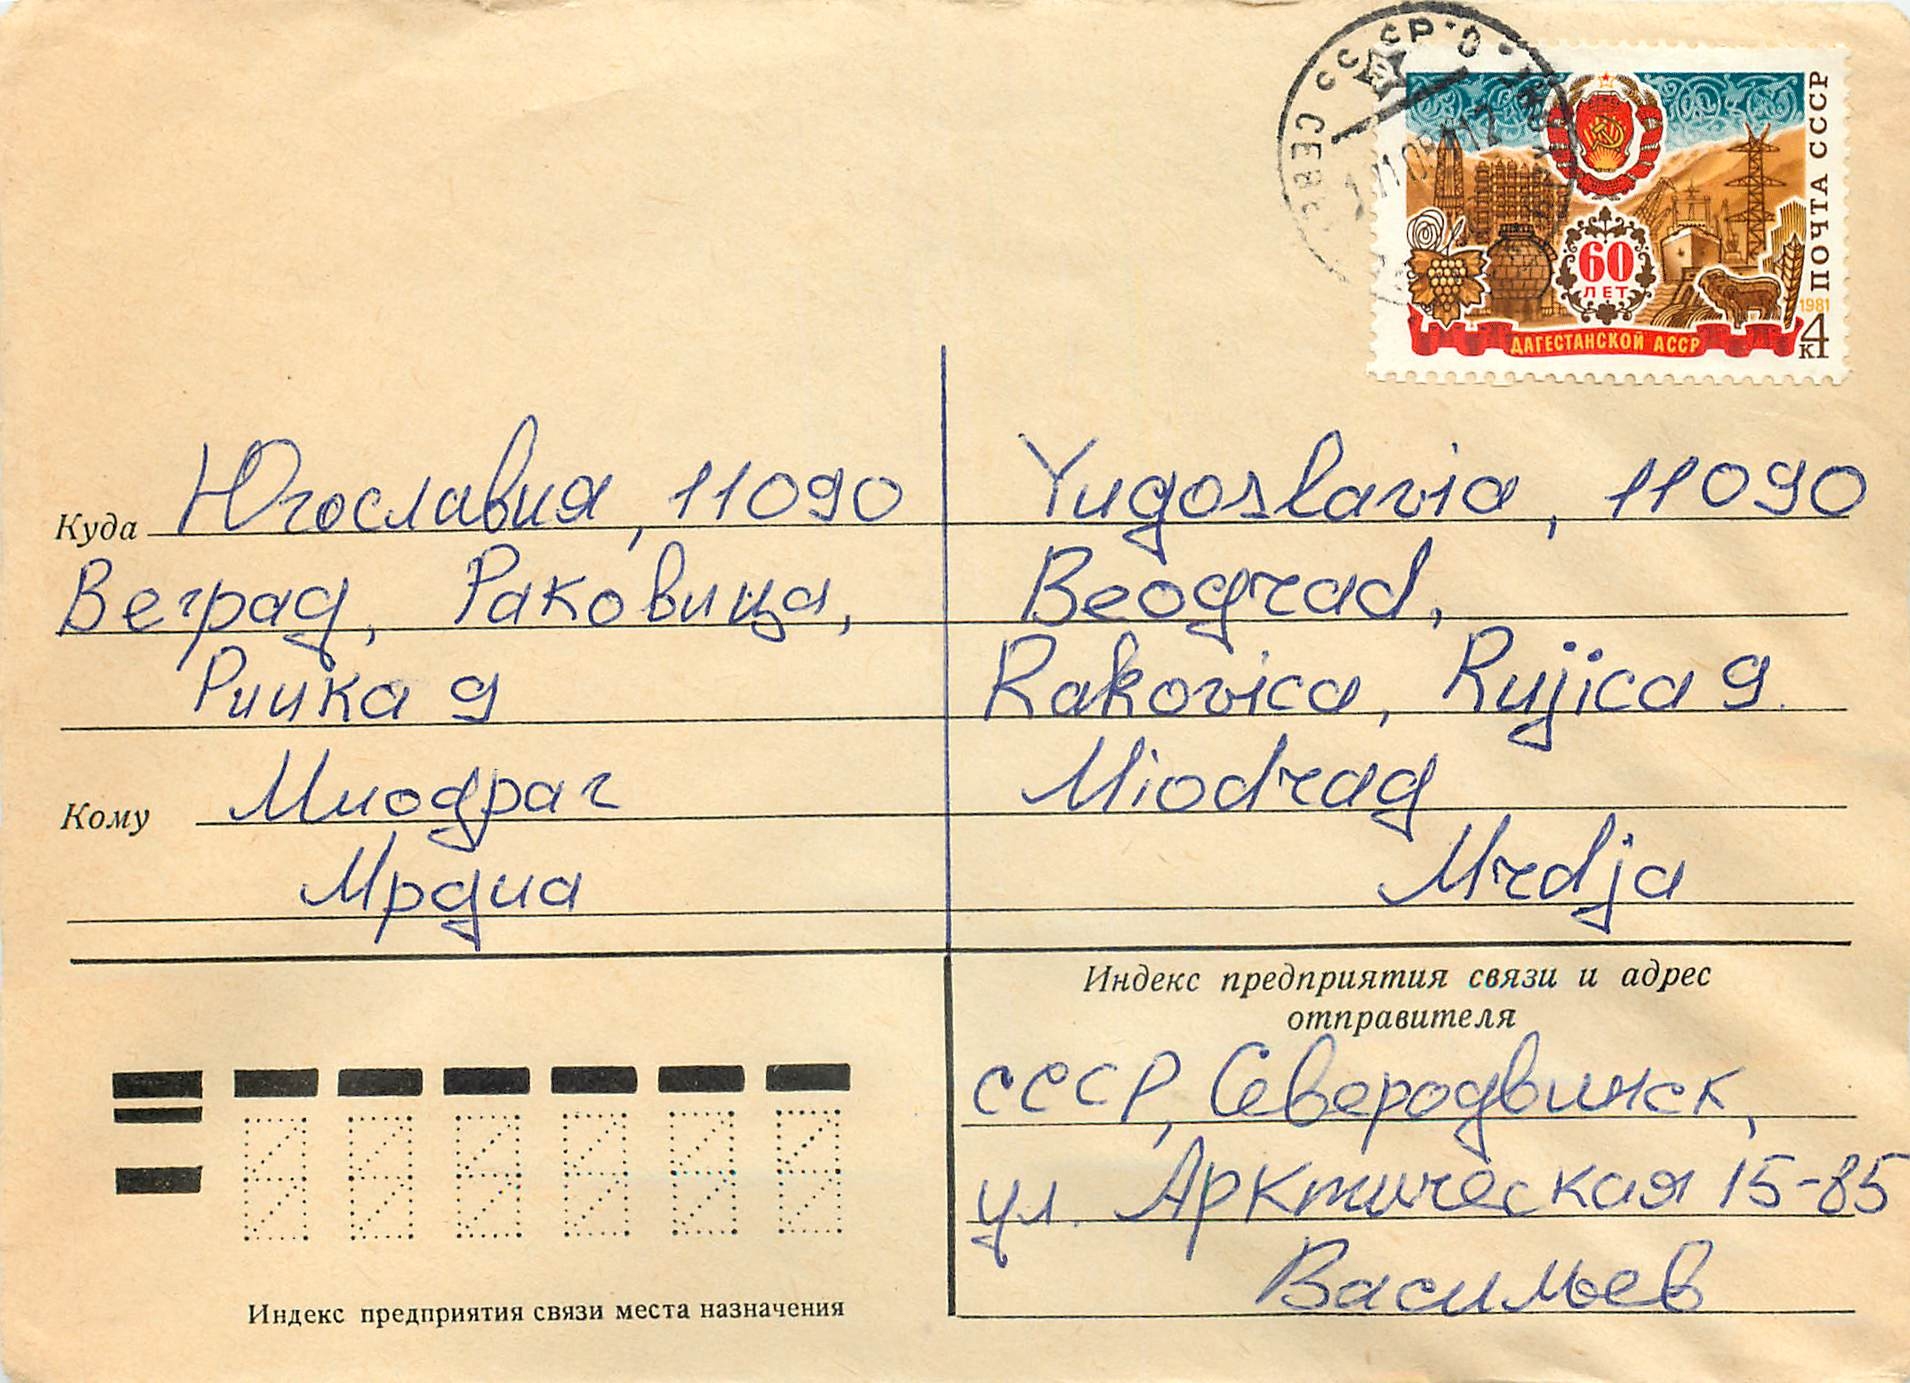 ПОЧТА СССР
1981
4 к
60
ЛЕТ
ДАГЕСТАНСКОЙ АССР
СССР
Куда Югославия, 11090
Веград, Раковица,
Риика 9
Кому Миодраг
Мрдиа
Yugoslavia, 11090
Beograd,
Rakovica, Rujica 9.
Miodrag
Mrdja
Индекс предприятия связи и адрес
отправителя
СССР, Северодвинск,
ул. Арктическая 15-85
Васильев
Индекс предприятия связи места назначения